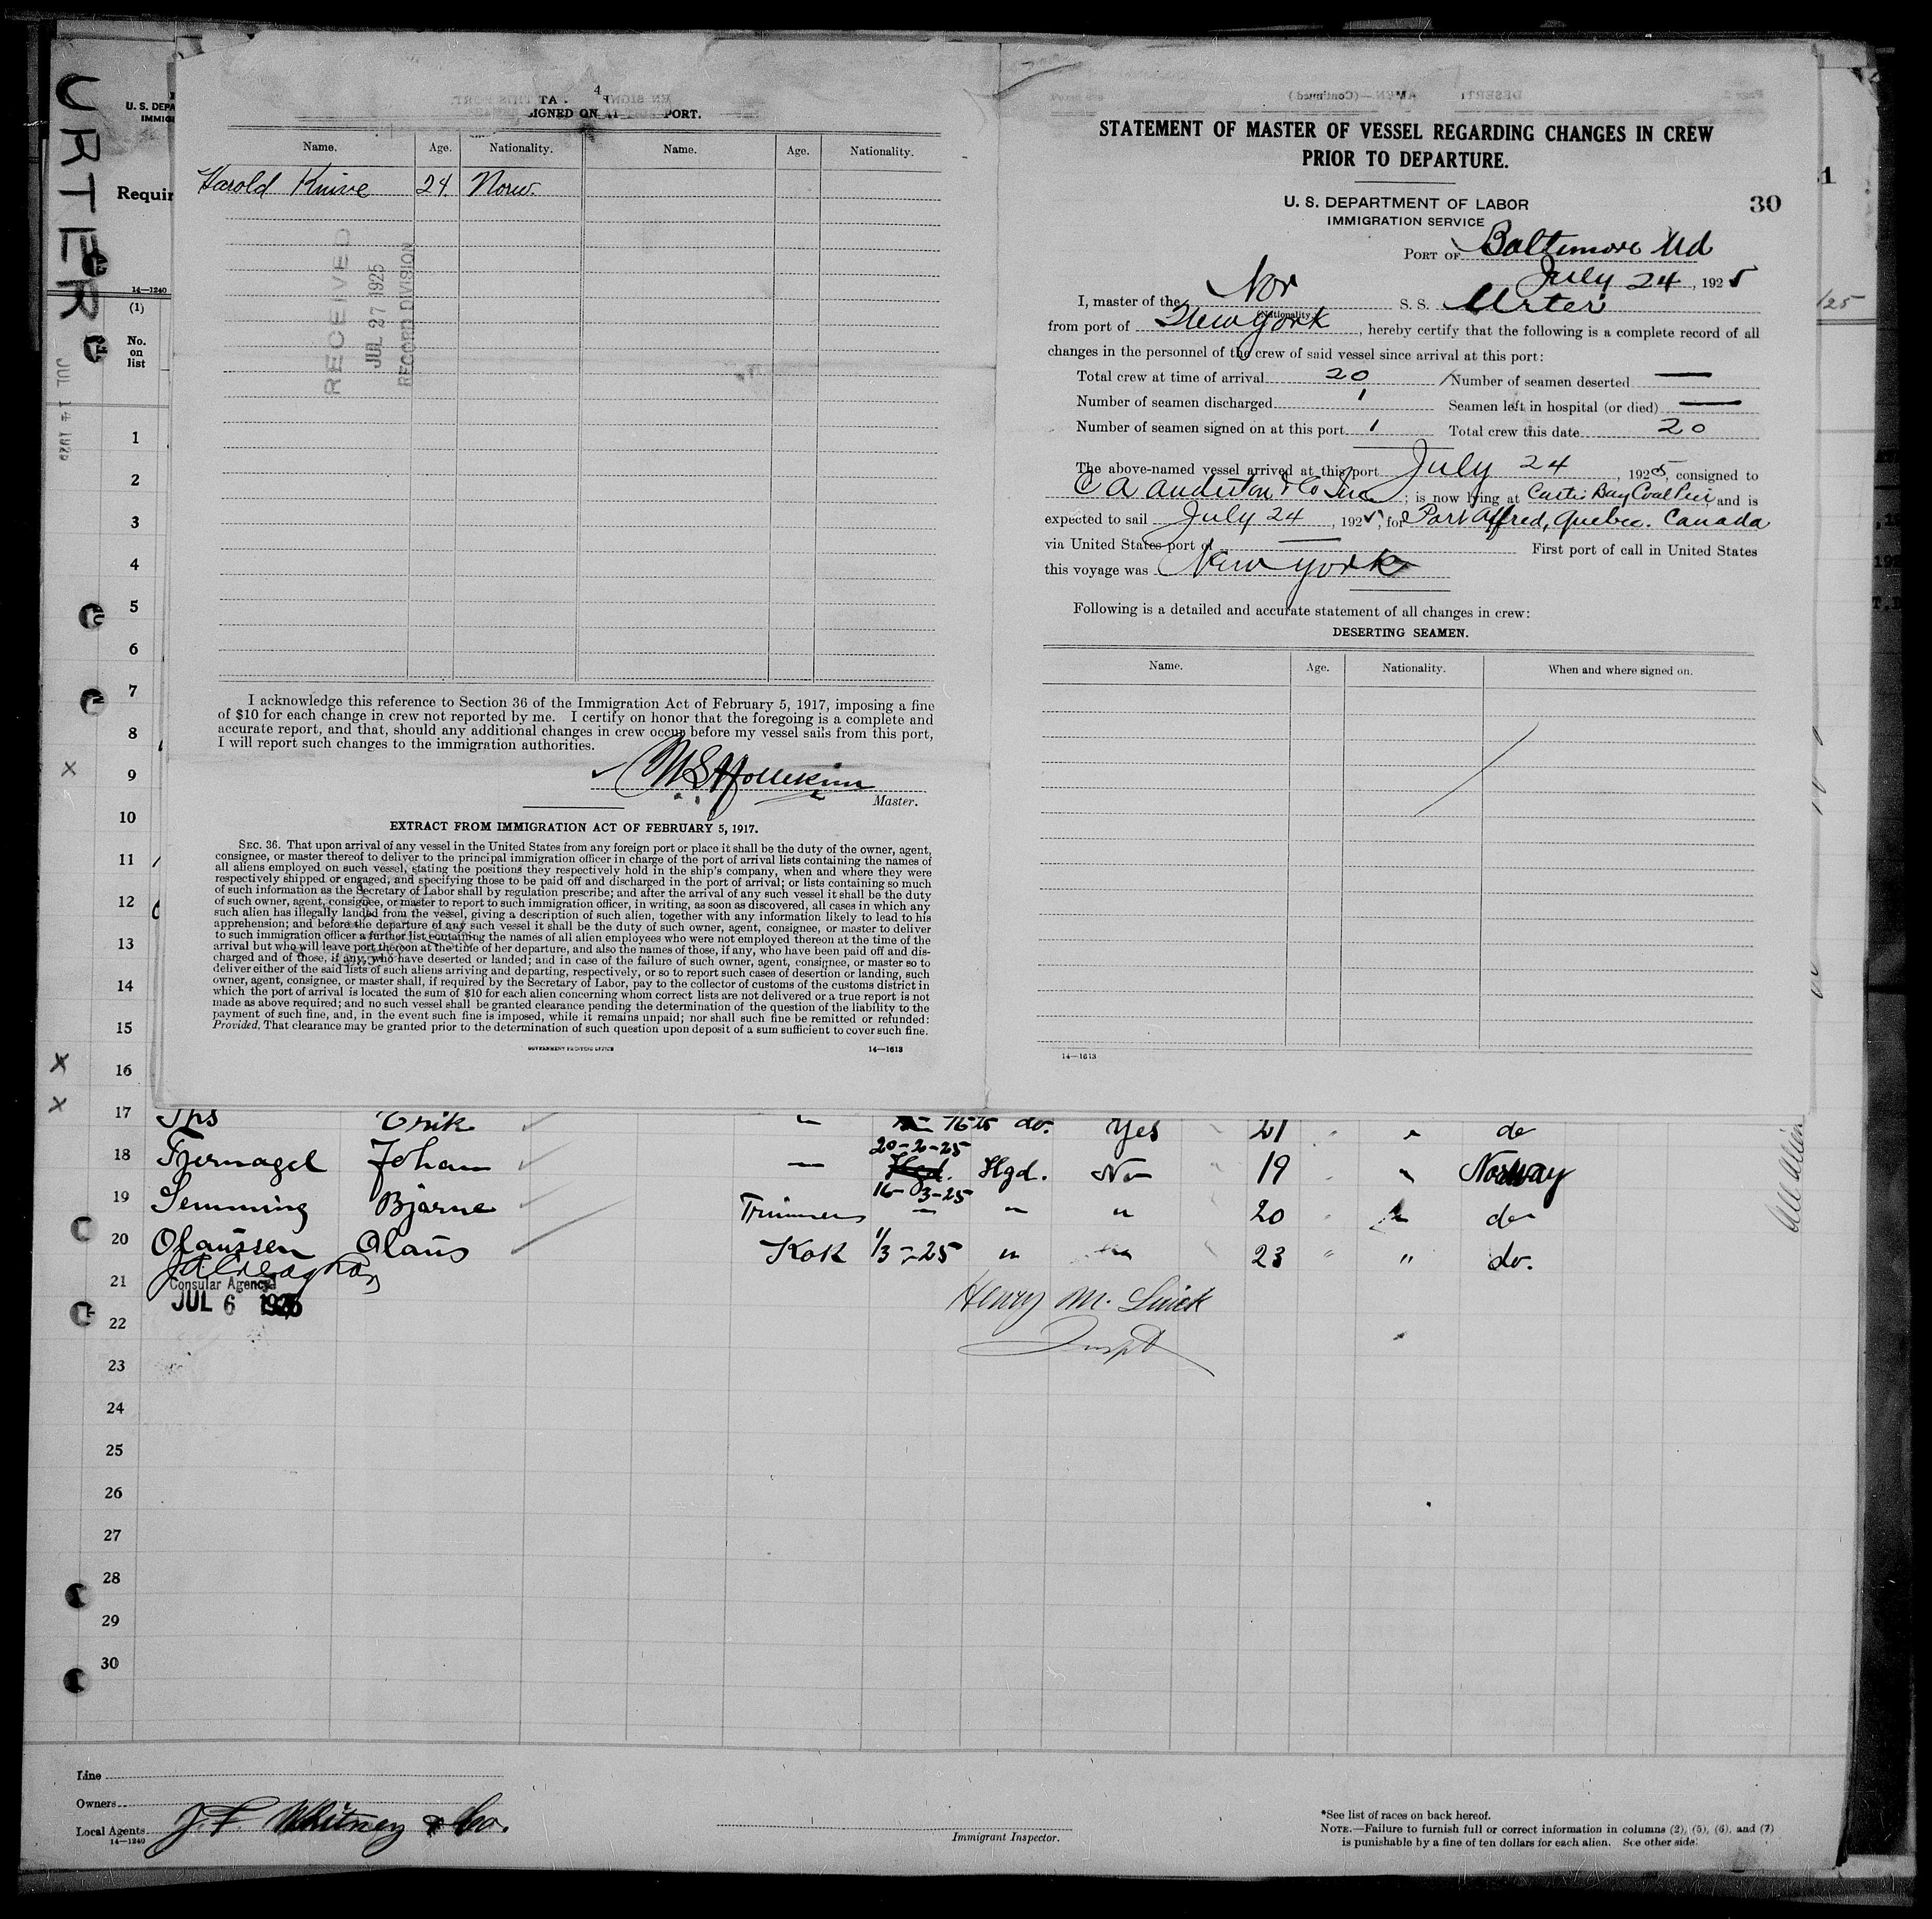 URTER
JUL 14 1925
U. S. DEPA
IMMIG
Requir
14—1240
(1)
No.
on
list
4
SIGNED ON AT PORT.
Name. Age. Nationality. Name. Age. Nationality.
Harold Knive 24 Norw.
RECEIVED
JUL 27 1925
RECORD DIVISION
I acknowledge this reference to Section 36 of the Immigration Act of February 5, 1917, imposing a fine
of $10 for each change in crew not reported by me. I certify on honor that the foregoing is a complete and
accurate report, and that, should any additional changes in crew occur before my vessel sails from this port,
I will report such changes to the immigration authorities.
Master.
EXTRACT FROM IMMIGRATION ACT OF FEBRUARY 5, 1917.
SEC. 36. That upon arrival of any vessel in the United States from any foreign port or place it shall be the duty of the owner, agent,
consignee, or master thereof to deliver to the principal immigration officer in charge of the port of arrival lists containing the names of
all aliens employed on such vessel, stating the positions they respectively hold in the ship's company, when and where they were
respectively shipped or engaged, and specifying those to be paid off and discharged in the port of arrival; or lists containing so much
of such information as the Secretary of Labor shall by regulation prescribe; and after the arrival of any such vessel it shall be the duty
of such owner, agent, consignee, or master to report to such immigration officer, in writing, as soon as discovered, all cases in which any
such alien has illegally landed from the vessel, giving a description of such alien, together with any information likely to lead to his
apprehension; and before the departure of any such vessel it shall be the duty of such owner, agent, consignee, or master to deliver
to such immigration officer a further list containing the names of all alien employees who were not employed thereon at the time of the
arrival but who will leave port thereon at the time of her departure, and also the names of those, if any, who have been paid off and dis-
charged and of those, if any, who have deserted or landed; and in case of the failure of such owner, agent, consignee, or master so to
deliver either of the said lists of such aliens arriving and departing, respectively, or so to report such cases of desertion or landing, such
owner, agent, consignee, or master shall, if required by the Secretary of Labor, pay to the collector of customs of the customs district in
which the port of arrival is located the sum of $10 for each alien concerning whom correct lists are not delivered or a true report is not
made as above required; and no such vessel shall be granted clearance pending the determination of the question of the liability to the
payment of such fine, and, in the event such fine is imposed, while it remains unpaid; nor shall such fine be remitted or refunded:
Provided, That clearance may be granted prior to the determination of such question upon deposit of a sum sufficient to cover such fine.
GOVERNMENT PRINTING OFFICE 14—1613
STATEMENT OF MASTER OF VESSEL REGARDING CHANGES IN CREW
PRIOR TO DEPARTURE.
U. S. DEPARTMENT OF LABOR
IMMIGRATION SERVICE
30
PORT OF Baltimore Md
July 24, 1925
I, master of the Nor S. S. Urter
(Nationality)
from port of New York, hereby certify that the following is a complete record of all
changes in the personnel of the crew of said vessel since arrival at this port:
Total crew at time of arrival 20 Number of seamen deserted —
Number of seamen discharged 1 Seamen left in hospital (or died) —
Number of seamen signed on at this port 1 Total crew this date 20
The above-named vessel arrived at this port July 24, 1925, consigned to
C A Anderton & Co Inc; is now lying at Curtis Bay Coal Pier, and is
expected to sail July 24, 1925, for Port Alfred, Quebec. Canada
via United States port of — First port of call in United States
this voyage was New York
Following is a detailed and accurate statement of all changes in crew:
DESERTING SEAMEN.
Name. Age. Nationality. When and where signed on.
14—1613
1
2
3
4
5
6
7
8
9
10
11
12
13
14
15
16
17 Erik do. Yes 21 " do
18 Johan — 20-2-25 Hgd. No 19 " Norway
19 Semming Bjarne Trimmer 16-3-25 " " 20 " do
20 Olaussen Olaus Kok 1/3-25 " " 23 " do.
21 Consular Agency
JUL 6 1925
Henry M.
22 Inspt
23
24
25
26
27
28
29
30
Line
Owners
Local Agents J. F. Whitney & Co.
14—1240
Immigrant Inspector.
*See list of races on back hereof.
NOTE.—Failure to furnish full or correct information in columns (2), (5), (6), and (7)
is punishable by a fine of ten dollars for each alien. See other side.